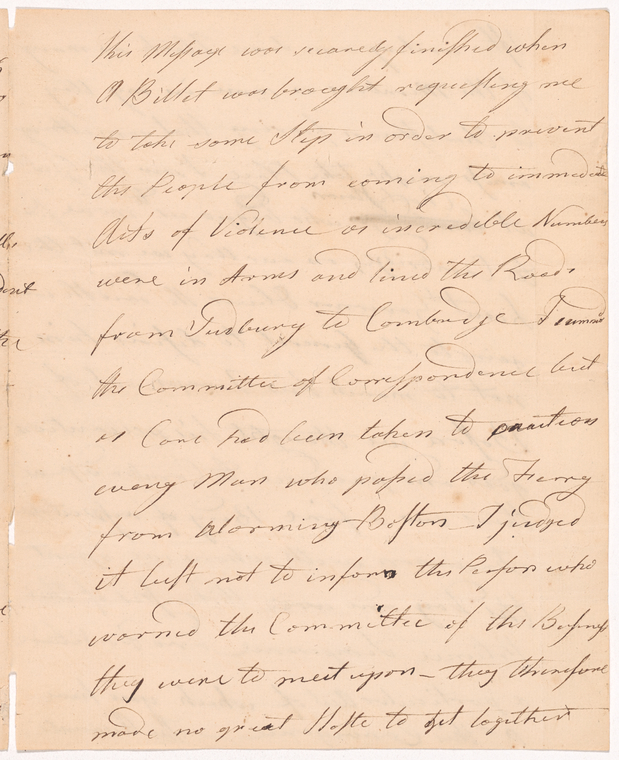 this Message was scarcely finished when
A Billet was brought requesting me
to take some Step in order to prevent
the People from coming to immediate
Acts of Violence as incredible Numbers
were in Arms and lined the Roads
from Sudbury to Cambridge I summd
the Committee of Correspondence but
as Care had been taken to caution
every Man who passed the Ferry
from alarming Boston I judged
it best not to inform the Person who
warned the Committee of the Business
they were to meet upon — they therefore
made no great Haste to get together